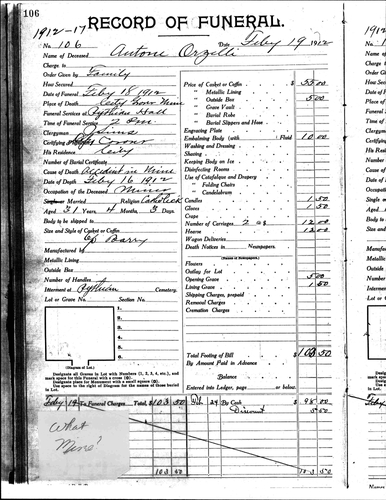 106
1912-17
RECORD OF FUNERAL.
No. 106 Date Feby 19 1912
Name of Deceased Antoni Orzelli
Charge to
Order Given by Family
How Secured
Date of Funeral Feby 18 1912
Place of Death
Funeral Services at Pythian Hall
Time of Funeral Service 2 P.m.
Clergyman
Certifying Coroner
His Residence
Number of Burial Certificate
Cause of Death Accident in Mine
Date of Death Feby 16 1912
Occupation of the Deceased Miner
Single or Married Religion Catholick
Aged 31 Years, 4 Months, 3 Days.
Body to be shipped to
Size and Style of Casket or Coffin
Barry
Manufactured by
Metallic Lining
Outside Box
Number of Handles
Interment at Pythian Cemetery.
Lot or Grave No. Section No.
1.
2.
3.
4.
5.
6.
(Diagram of Lot.)
Designate all Graves in Lot with Numbers (1, 2, 3, 4, etc.), and
mark space for this Funeral with a cross
Designate place for Monument with a small square
Use the space to right of Diagram for the names of those buried
in Lot.
Price of Casket or Coffin $ 55 00
" Metallic Lining
" Outside Box 5 00
" Grave Vault
" Burial Robe
" Burial Slippers and Hose
Engraving Plate
Embalming Body (with Fluid) 10 00
Washing and Dressing
Shaving
Keeping Body on Ice
Disinfecting Rooms
Use of Catafalque and Drapery
" Folding Chairs
" Candelabrum
Candles 1 50
Gloves 1 50
Crape
Number of Carriages 2 @ $ 12 00
Hearse 12 00
Wagon Deliveries
Death Notices in Newspapers.
(Names of Newspapers.)
Flowers
Outlay for Lot
Opening Grave 5 00
Lining Grave 1 50
Shipping Charges, prepaid
Removal Charges
Cremation Charges
Total Footing of Bill $ 103 50
By Amount Paid in Advance
Balance
Entered into Ledger, page or below.
Feby 19 To Funeral Charges Total, $ 103 50 24 By Cash $ 98 00
Discount 5 50
What
Mine?
103 50 103 50